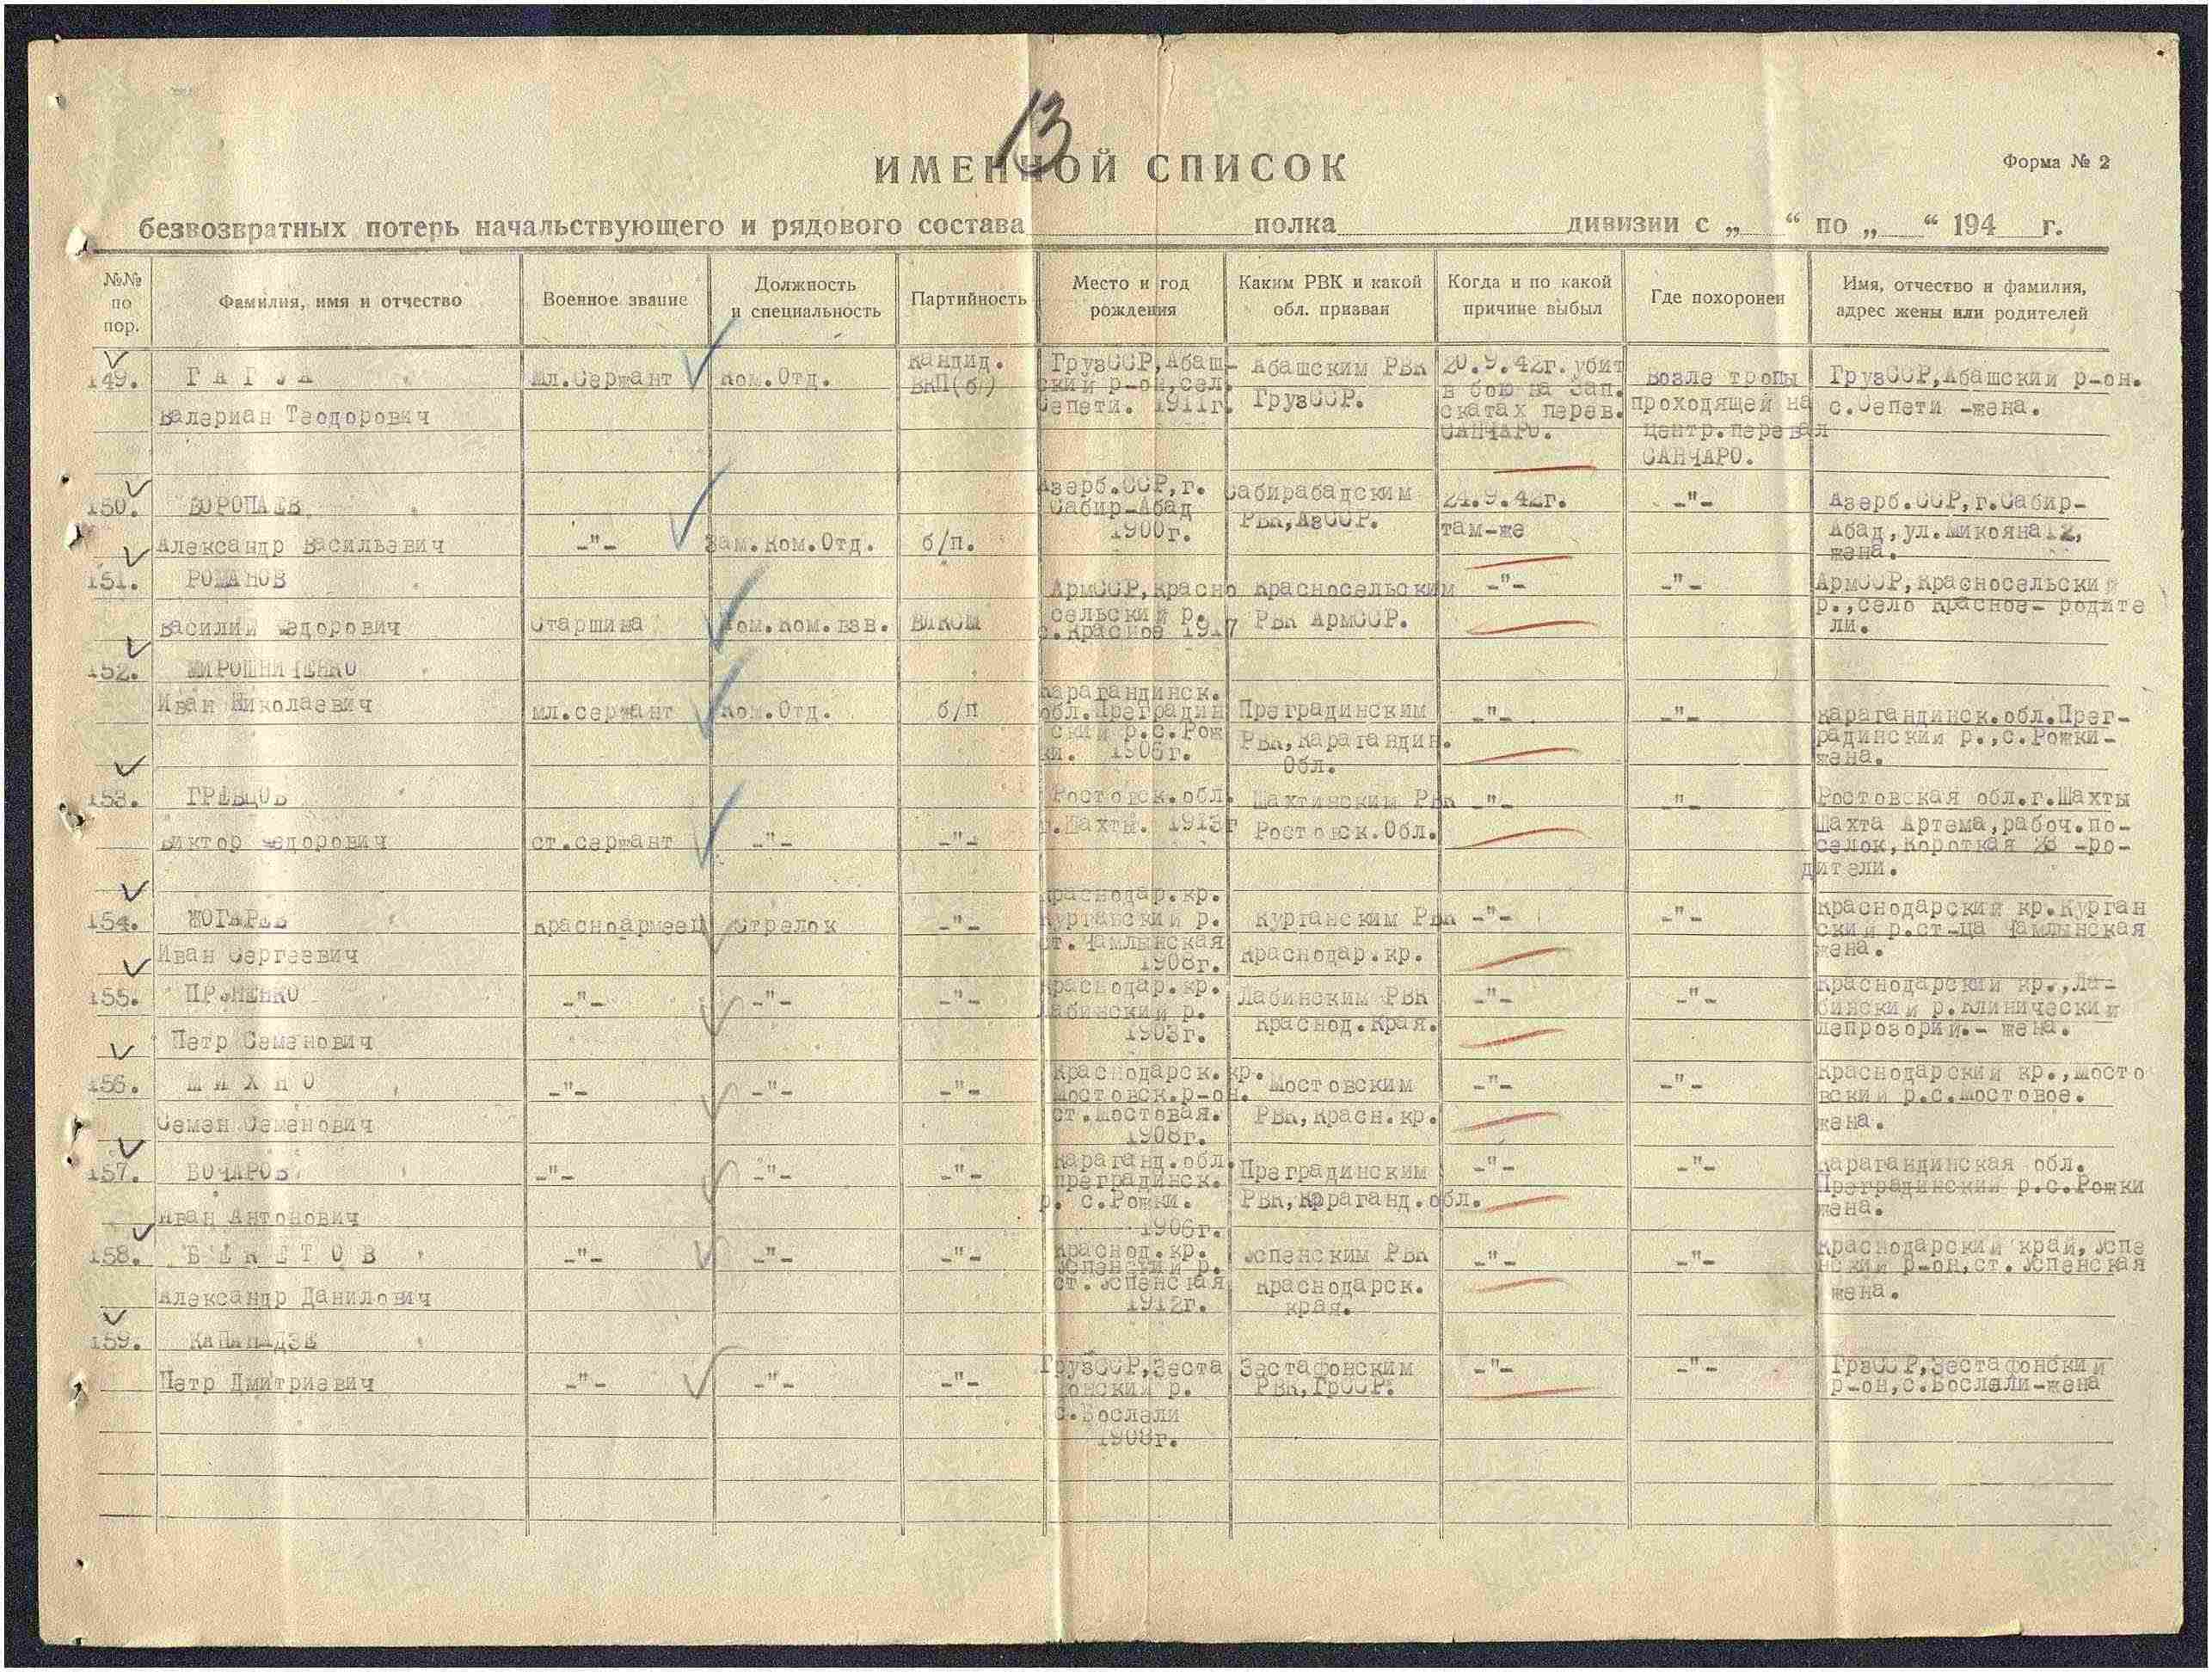 13
ИМЕННОЙ СПИСОК
Форма № 2
безвозвратных потерь начальствующего и рядового состава полка дивизии с „ “ по „ “ 194 г.
№№ по пор.
Фамилия, имя и отчество
Военное звание
Должность и специальность
Партийность
Место и год рождения
Каким РВК и какой обл. призван
Когда и по какой причине выбыл
Где похоронен
Имя, отчество и фамилия, адрес жены или родителей
149.
Валериан Теодорович
Мл.Сержант
Ком.Отд.
Кандид.
ВКП(б)
ГрузССР,Абаш-
ский р-он,сел.
Сепети. 1911г.
Абашским РВК
ГрузССР.
20.9.42г. убит
в бою на зап.
скатах перев.
САНЧАРО.
Возле тропы
проходящей на
центр.перевал
САНЧАРО.
ГрузССР,Абашский р-он.
с.Сепети -жена.
150.
ВОРОПАЕВ
Александр Васильевич
-"-
Зам.Ком.Отд.
б/п.
Азерб.ССР,г.
Сабир-Абад
1900г.
Сабирабадским
РВК,АзССР.
24.9.42г.
там-же
-"-
Азерб.ССР,г.Сабир-
Абад,ул.Микояна12,
жена.
151.
РОМАНОВ
Василий Федорович
Старшина
Пом.Ком.взв.
ВЛКСМ
АрмССР,Красно
сельский р.
с.Красное 1917
Красносельским
РВК АрмССР.
-"-
-"-
АрмССР,Красносельский
р.,село Красное- родите
ли.
152.
МИРОШНИЧЕНКО
Иван Николаевич
мл.сержант
Ком.Отд.
б/п
Карагандинск.
обл.Преградин
ский р.с.Рож
ки. 1906г.
Преградинским
РВК,Карагандин.
Обл.
-"-
-"-
Карагандинск.обл.Прег-
радинский р.,с.Рожки-
жена.
153.
ГРЕВЦОВ
Виктор Федорович
ст.сержант
-"-
-"-
Ростовск.обл.
г.Шахты. 1913г
Шахтинским РВК
Ростовск.Обл.
-"-
-"-
Ростовская обл.г.Шахты
Шахта Артема,рабоч.по-
селок,Короткая 28 -ро-
дители.
154.
ЖОГАРЕВ
Иван Сергеевич
Красноармеец
Стрелок
-"-
Краснодар.кр.
Курганский р.
ст.Чамлыкская
1908г.
Курганским РВК
Краснодар.кр.
-"-
-"-
Краснодарский кр.Курган
ский р.ст-ца Чамлыкская
жена.
155.
Петр Семенович
-"-
-"-
-"-
Краснодар.кр.
Лабинский р.
1903г.
Лабинским РВК
Краснод.Края.
-"-
-"-
Краснодарский кр.,Ла-
бинский р.Клинический
лепрозорий.- жена.
156.
М И Х Н О
Семен Семенович
-"-
-"-
-"-
Краснодарск.кр.
Мостовск.р-он.
ст.Мостовая.
1908г.
Мостовским
РВК,Красн.кр.
-"-
-"-
Краснодарский кр.,Мосто
вский р.с.Мостовое.
жена.
157.
БОЧАРОВ
Иван Антонович
-"-
-"-
-"-
Караганд.обл.
Преградинск.
р. с.Рожки.
1906г.
Преградинским
РВК,Караганд.обл.
-"-
-"-
Карагандинская обл.
Преградинский р.с.Рожки
жена.
158.
Б Е К Е Т О В
Александр Данилович
-"-
-"-
-"-
Краснод.кр.
Успенский р.
ст.Успенская
1912г.
Успенским РВК
Краснодарск.
края.
-"-
-"-
Краснодарский край,Успе
нский р-он,ст.Успенская
жена.
159.
КАПАНАДЗЕ
Петр Дмитриевич
-"-
-"-
-"-
ГрузССР,Зеста
фонский р.
с.Бослели
1908г.
Зестафонским
РВК,ГрССР.
-"-
-"-
ГрзССР,Зестафонский
р-он,с.Бослели-жена